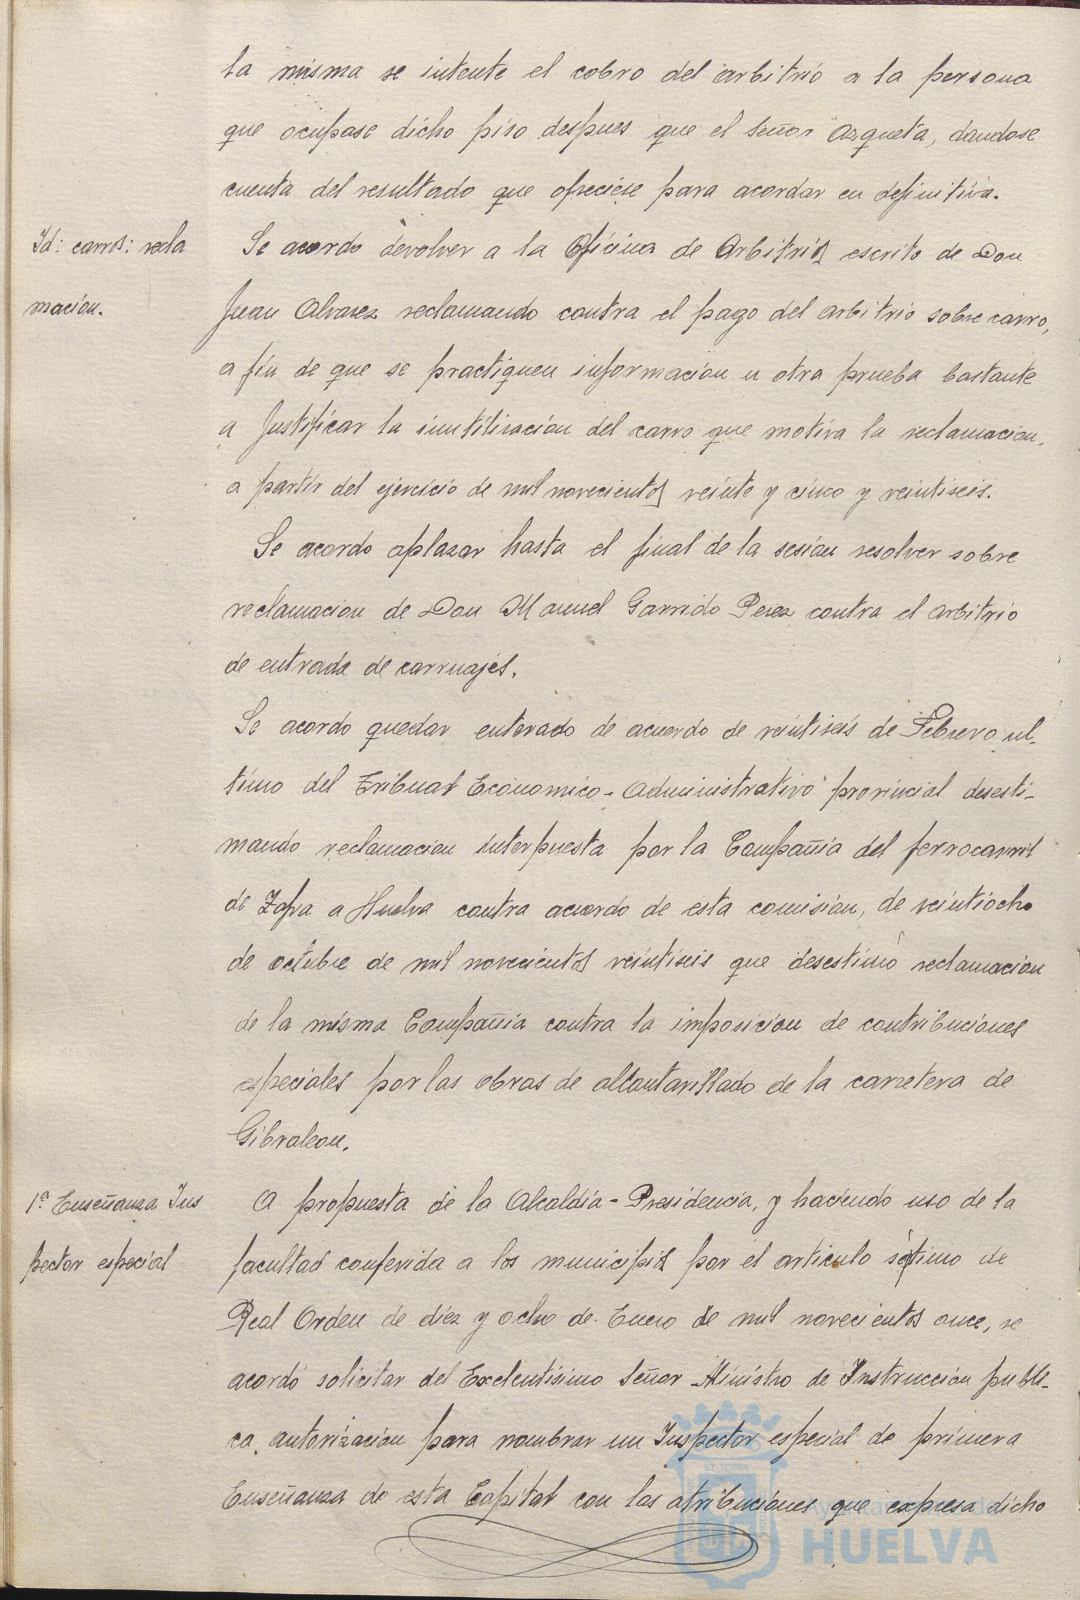 la misma se intente el cobro del arbitrio a la persona
que ocupase dicho piso despues que el Señor Azqueta, dandose
cuenta del resultado que ofreciese para acordar en definitiva.
Id: carros: recla
macion.
Se acordo devolver a la Oficina de Arbitrios escrito de Don
Juan Alvarez reclamando contra el pago del arbitrio sobre carro,
a fin de que se practiquen informacion u otra prueba bastante
a Justificar la inutilizacion del carro que motiva la reclamacion,
a partir del ejercicio de mil novecientos veinte y cinco y veintiseis.
Se acordo aplazar hasta el final de la sesion resolver sobre
reclamacion de Don Manuel Garrido Perez contra el arbitrio
de entrada de carruajes.
Se acordo quedar enterado de acuerdo de veintiseis de Febrero ul-
timo del Tribunal Economico-Administrativo provincial desesti-
mando reclamacion interpuesta por la Compañia del ferrocarril
de Zafra a Huelva contra acuerdo de esta comision, de veintiocho
de octubre de mil novecientos veintiseis que desestimó reclamacion
de la misma Compañia contra la imposicion de contribuciones
especiales por las obras de alcantarillado de la carretera de
Gibraleon.
1ª Enseñanza Ins
pector especial
A propuesta de la Alcaldia-Presidencia, y haciendo uso de la
facultad conferida a los municipios por el articulo septimo de
Real Orden de diez y ocho de Enero de mil novecientos once, se
acordó solicitar del Excelentisimo Señor Ministro de Instruccion publi-
ca, autorizacion para nombrar un Inspector especial de primera
Enseñanza de esta Capital con las atribuciones que expresa dicho
Ayuntamiento de
HUELVA